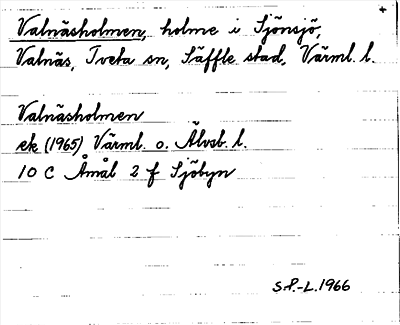 Valnäsholmen, holme i Sjönsjö,
Valnäs, Tveta sn, Säffle stad, Värml. l.
Valnäsholmen
ek (1965) Värml. o. Älvsb. l.
10 C Åmål 2 f Sjöbyn
S.P.-L. 1966